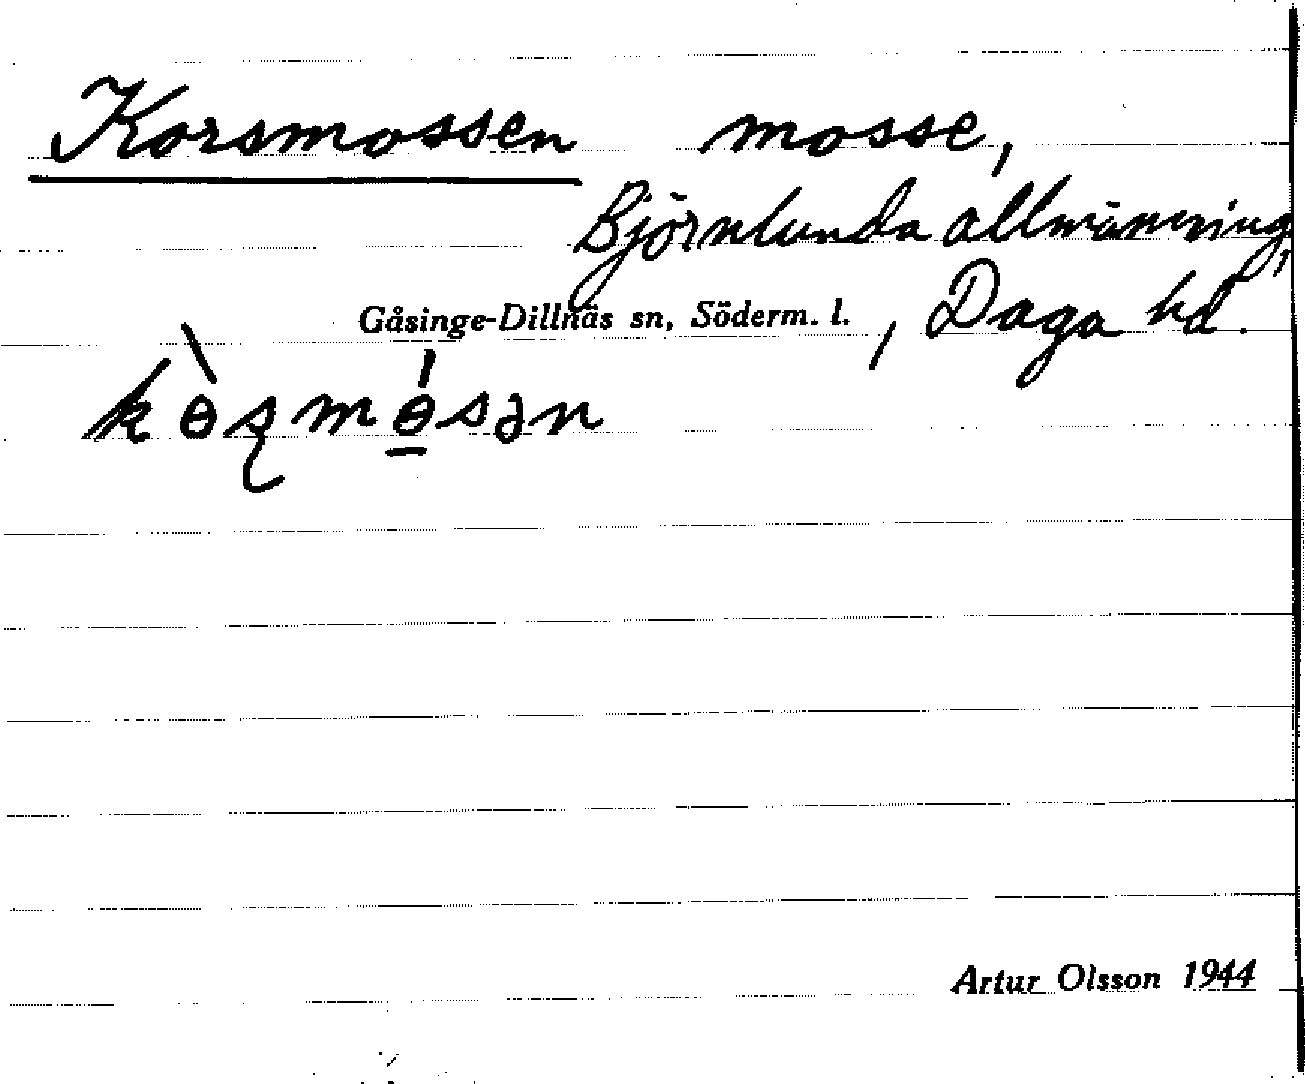 Korsmossen mosse,
Björnlunda allmänning,
Gåsinge-Dillnäs sn, Söderm. l., Daga hd.
kɵ̀ʂmɵ̱́sən
Artur Olsson 1944